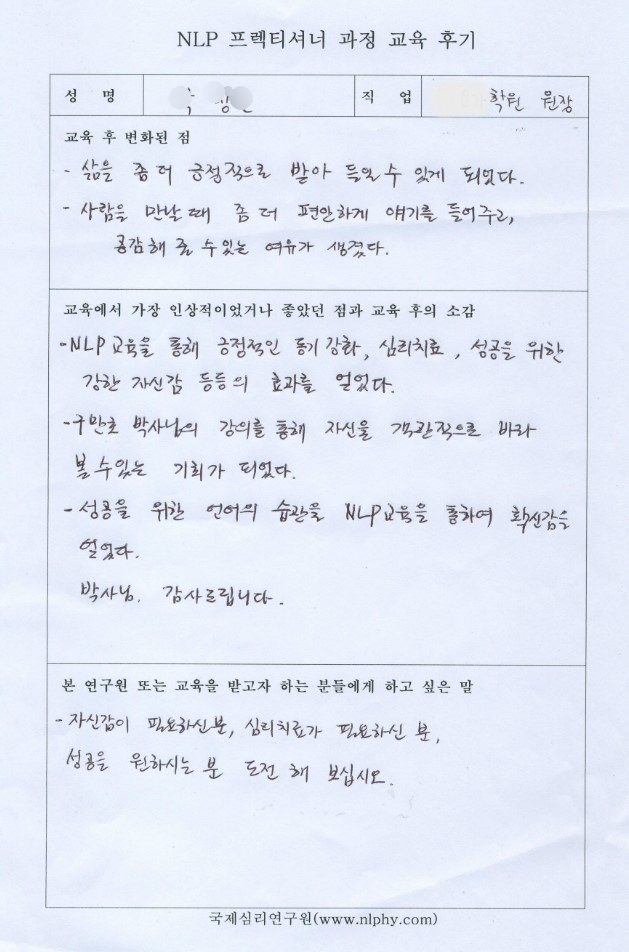 NLP 프렉티셔너 과정 교육 후기
성 명
직 업 학원 원장
교육 후 변화된 점
- 삶을 좀 더 긍정적으로 받아 들일 수 있게 되었다.
- 사람을 만날 때 좀 더 편안하게 얘기를 들어주고,
공감해 줄 수 있는 여유가 생겼다.
교육에서 가장 인상적이었거나 좋았던 점과 교육 후의 소감
- NLP 교육을 통해 긍정적인 동기 강화, 심리치료, 성공을 위한
강한 자신감 등등의 효과를 얻었다.
- 구만호 박사님의 강의를 통해 자신을 객관적으로 바라
볼 수 있는 기회가 되었다.
- 성공을 위한 언어의 습관을 NLP 교육을 통하여 확신감을
얻었다.
박사님. 감사드립니다.
본 연구원 또는 교육을 받고자 하는 분들에게 하고 싶은 말
- 자신감이 필요하신 분, 심리치료가 필요하신 분,
성공을 원하시는 분 도전 해 보십시오.
국제심리연구원(www.nlphy.com)